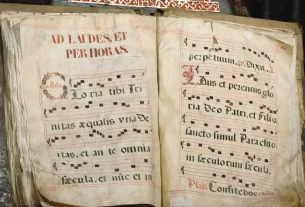 AD LAUDES, ET
PER HORAS.
Gloria tibi Tri
nitas æqualis una De
itas, et an te omnia
sæcula, et nūc et in
perpetuum, ps. Dixit.
Laus et perennis glo
ria Deo Patri, et Filio,
sancto simul Paraclito
in sæculorum sæcula.
Psal. Confitebor